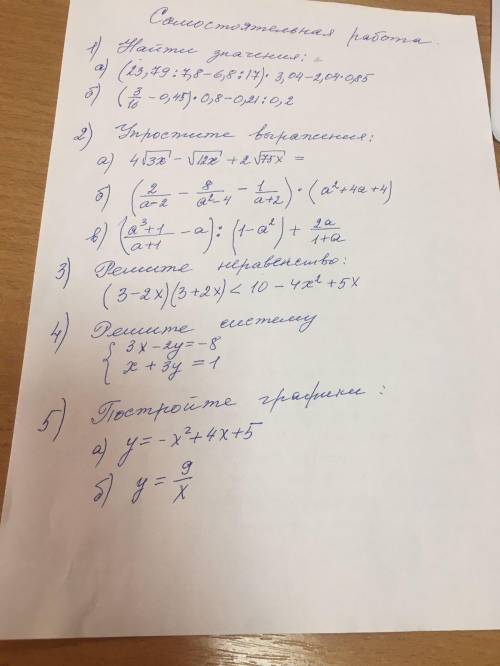 Самостоятельная работа.
1) Найти значения:
а) (23,79 : 7,8 - 6,8 : 17) · 3,04 - 2,04 · 0,85
б) (3/16 - 0,45) · 0,8 - 0,21 : 0,2
2) Упростите выражения:
а) 4√3x - √12x + 2√75x =
б) (2/(a-2) - 8/(a²-4) - 1/(a+2)) · (a²+4a+4)
в) ((a³+1)/(a+1) - a) : (1-a²) + 2a/(1+a)
3) Решите неравенство:
(3-2x)(3+2x) < 10 - 4x² + 5x
4) Решите систему
{ 3x - 2y = -8
x + 3y = 1
5) Постройте графики:
а) y = -x² + 4x + 5
б) y = 9/x